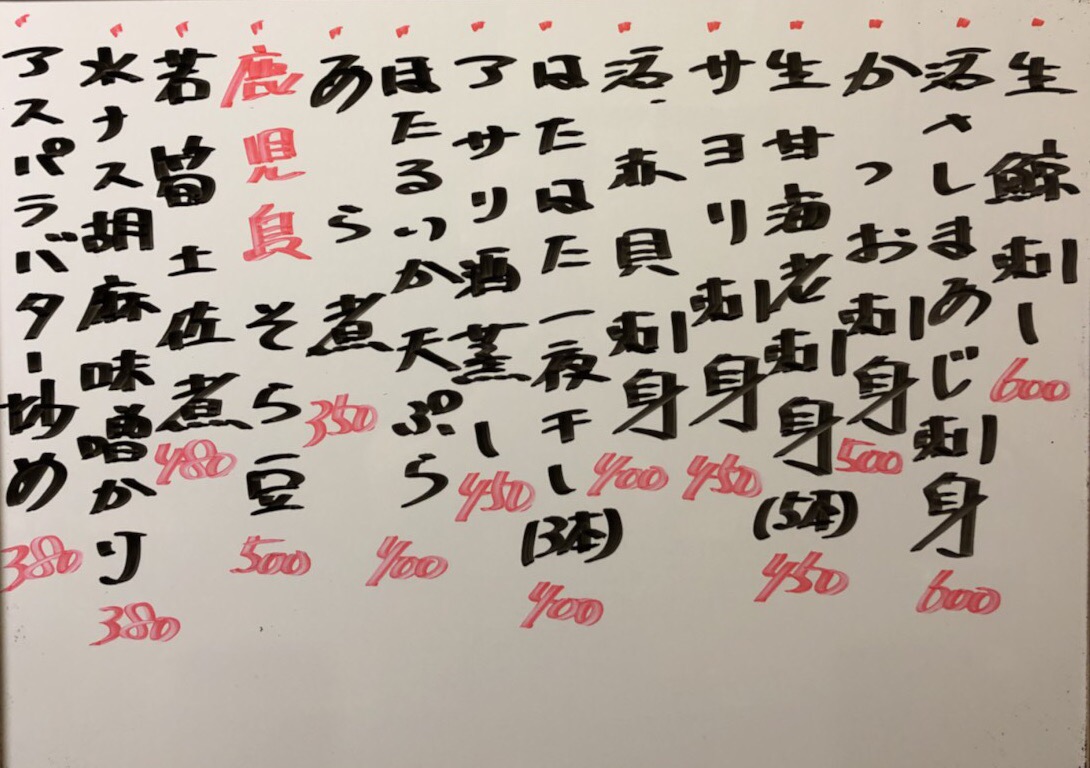 生鯨刺し 600
活〆しまあじ刺身 600
かつお刺身 500
生甘海老刺身(5本) 450
サヨリ刺身 450
活赤貝刺身 400
はたはた一夜干し(3本) 400
アサリ酒蒸し 450
ほたるいか天ぷら 400
あら煮 350
鹿児島そら豆 500
若筍土佐煮 480
水ナス胡麻味噌かけ 380
アスパラバター炒め 380